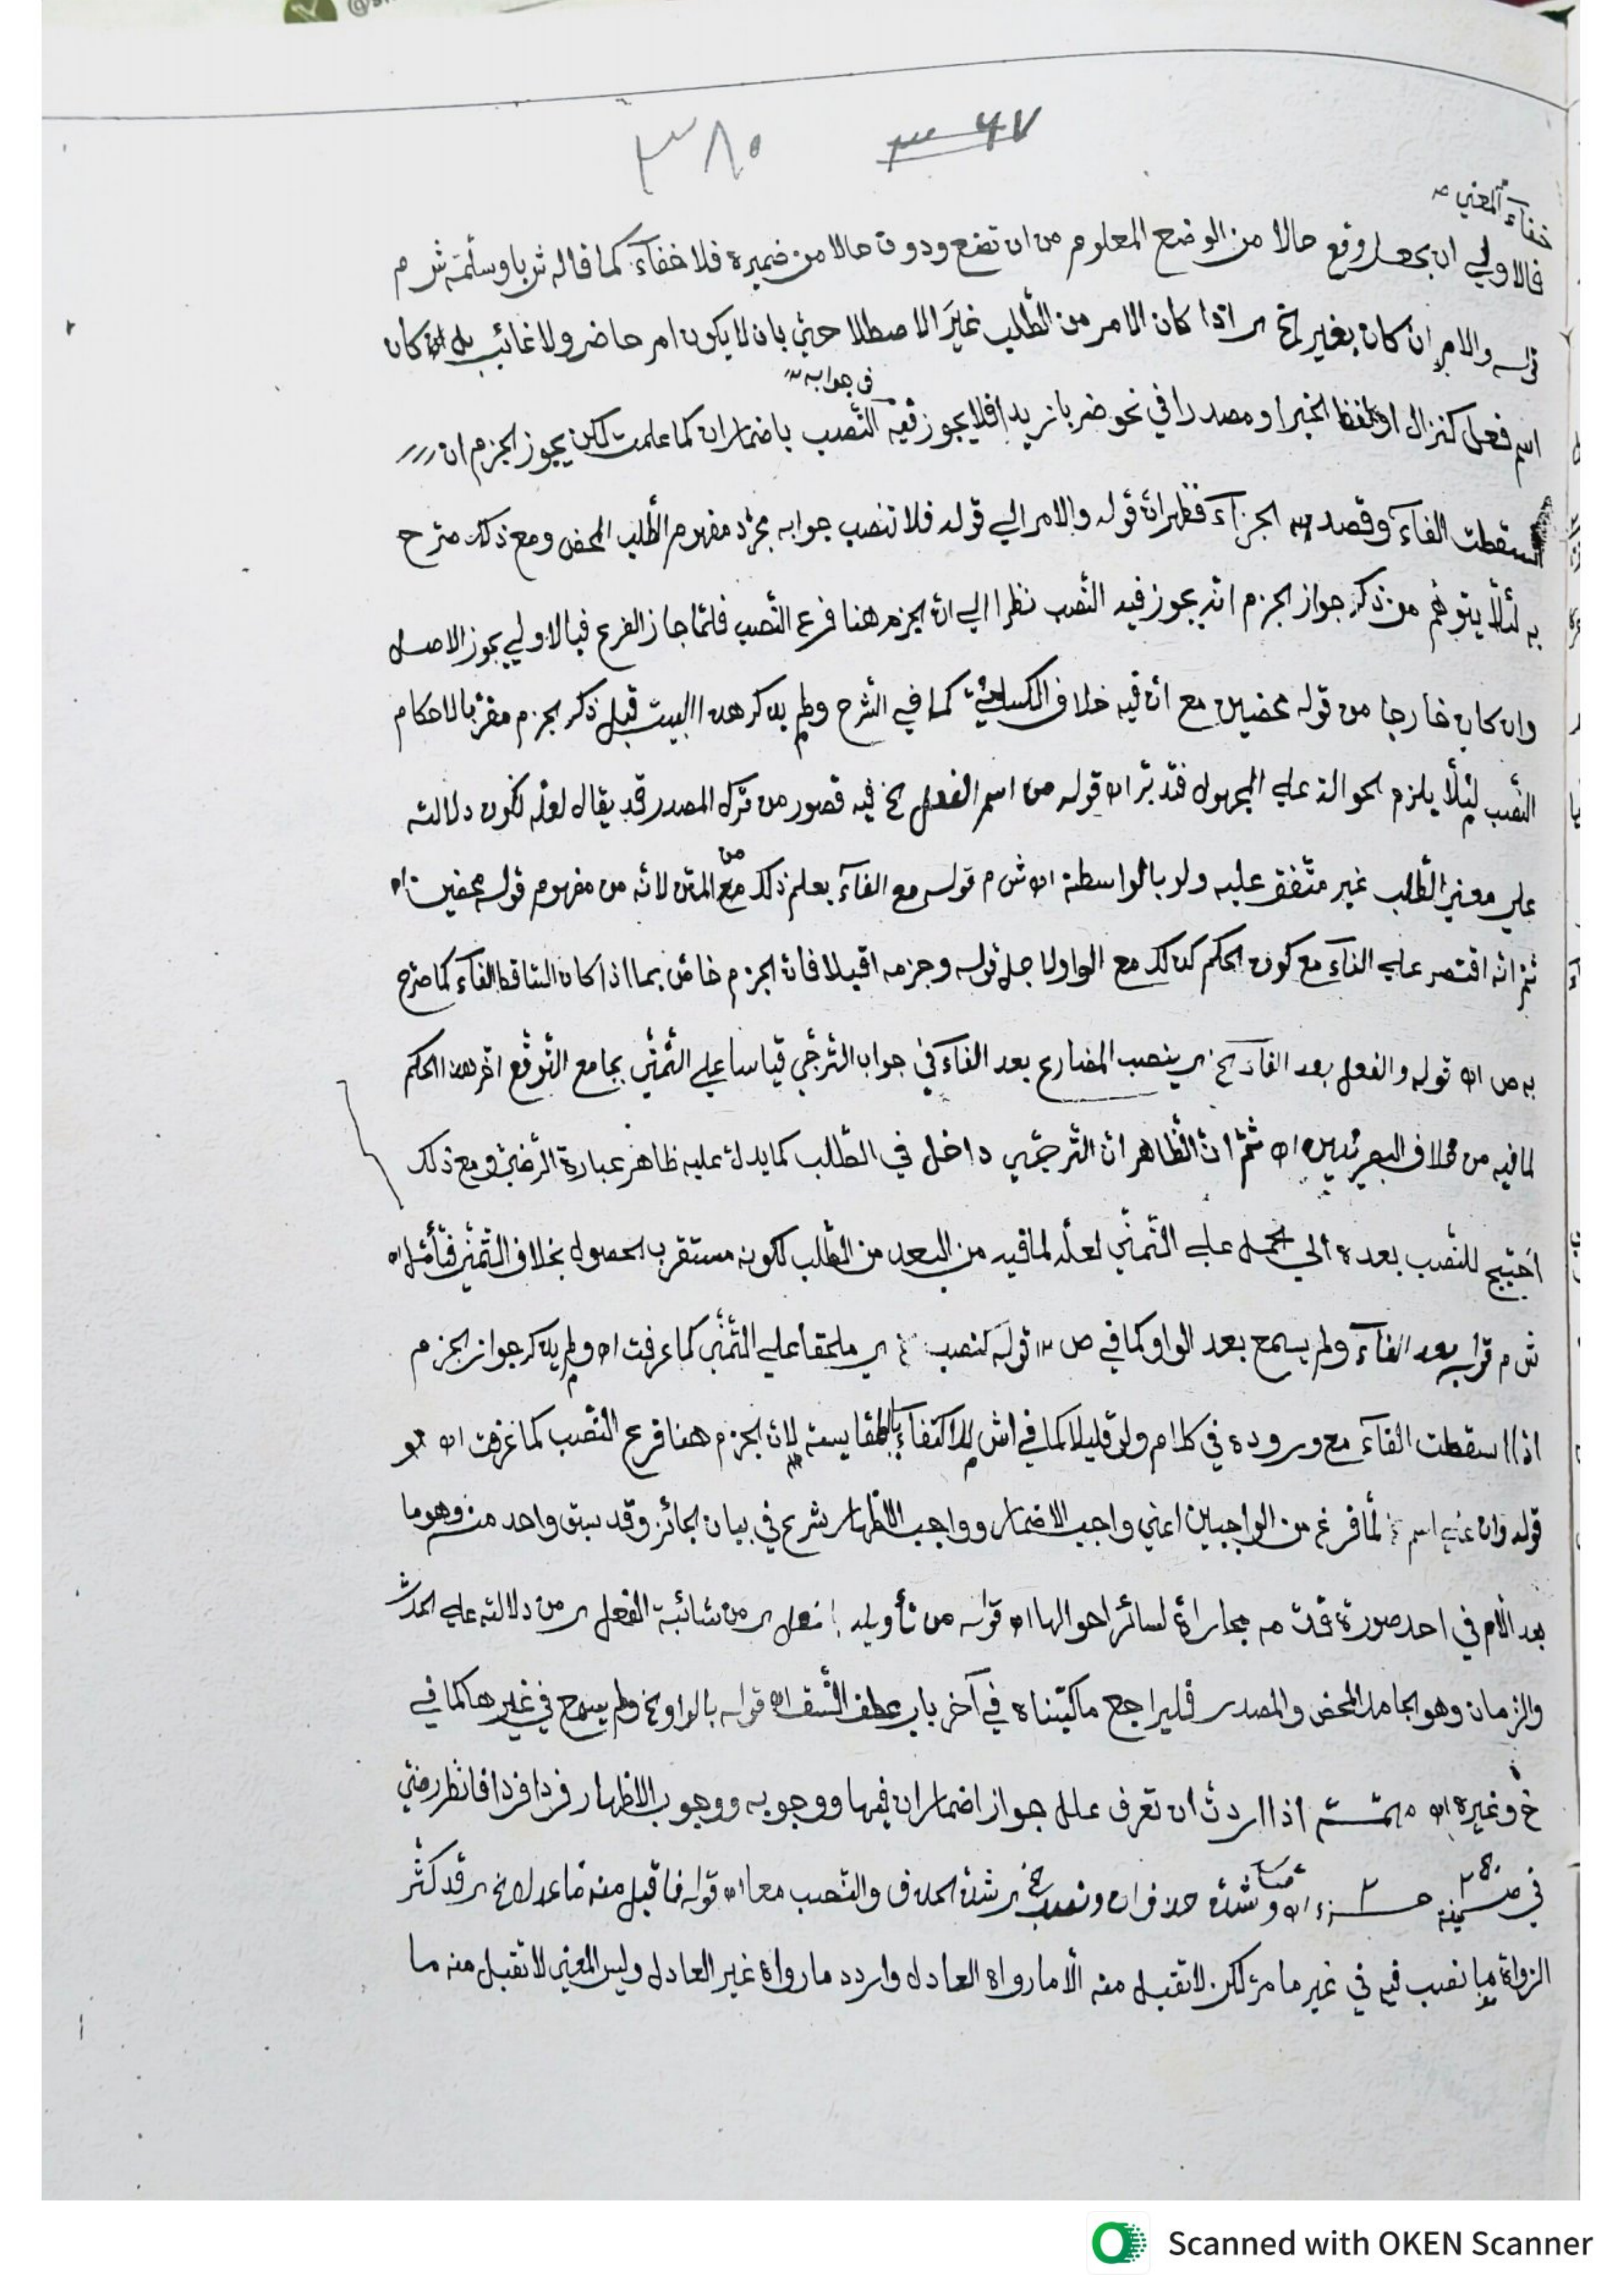 ٣٦٧ ٣٨٠
خفاء المعني صـ
فالاولي ان يجعل وقع حالا من الوضع المعلوم من ان تضع ودوق حالا من ضميره فلا خفآء كما قاله ش باوسلمة ش م
قوله والامر ان كان بغير الخ اي اذا كان الامر من الطّلب غيرَ الاصطلاحيّ بان لا يكون امر حاضر ولا غائب بل ان كان
في جوابه صـ
اسم فعل كنزال او بلفظ الخبر او مصدرا في نحو ضربا زيدا فلا يجوز فيه النّصب باضمار ان كما علمت لكن يجوز الجزم ان
اسقطت الفآء وقصد الجزآء فظهر انّ قوله والامر الي قوله فلا تنصب جوابه مجرّد مفهوم الطّلب المحض ومع ذلك صرّح
به لئلّا يتوهّم من ذكر جواز الجزم انّه يجوز فيه النّصب نظرا الي انّ الجزم هنا فرع النّصب فلمّا جاز الفرع فبالاولي يجوز الاصل
وان كان خارجا من قوله محضين مع انّ فيه خلاف الكسائيّ كما في الشّرح ولم يذكر هذا البيت قبل ذكر الجزم مقرّبا لاحكام
النّصب لئلّا يلزم الحوالة علي المجهول فتدبّر اه قوله من اسم الفعل الخ فيه قصور من ترك المصدر قد يقال لعلّه لكون دلالته
علي معني الطّلب غير متّفق عليه ولو بالواسطة اه ش م قوله مع الفآء يعلم ذلك من المتن لانّه من مفهوم قوله محضين اه
ثمّ انّه اقتصر علي الفآء مع كون الحكم كذلك مع الواو لاجل قوله وجزمه اقبلا فانّ الجزم خاصّ بما اذا كان السّاقط الفآء كما صرّح
به ص اه قوله والفعل بعد الفاء الخ اي ينصب المضارع بعد الفآء في جواب التّرجّي قياسا علي التّمنّي بجامع التّوقّع اخّر هذا الحكم
لما فيه من خلاف البصريّين اه ثمّ انّ الظّاهر انّ التّرجّي داخل في الطّلب كما يدلّ عليه ظاهر عبارة الرضيّ ومع ذلك
احتيج للنّصب بعده الي الحمل علي التّمنّي لعلّه لما فيه من البعد من الطّلب لكونه مستقرب الحصول بخلاف التّمنّي فتأمّل اه
ش م قوله بعد الفآء ولم يسمع بعد الواو كما في ص اه قوله كنصب الخ اي ملحقا علي التّمنّي كما عرفت اه ولم يذكر جواز الجزم
اذا اسقطت الفآء مع وروده في كلام ولو قليلا كما في اش للاكتفاء بالمقايسة لانّ الجزم هنا فرع النّصب كما عرفت اه
قوله وان علي اسم الخ لمّا فرغ من الواجبين اعني واجب الاضمار وواجب الاظهار شرع في بيان الجائز وقد سبق واحد منه وهو ما
بعد الّلام في احد صورة قدّمه مجاراة لسائر احوالها اه قوله من تأويله بالفعل اي من شائبة الفعل اي من دلالته علي الحدث
والزمان وهو الجامد المحض والمصدر فليراجع ما كتبناه في آخر باب عطف النّسق اه قوله بالواو الخ ولم يسمع في غيرها كما في
خ وغيره اه مهمّة اذا اردت ان تعرف علل جواز اضمار ان فيها ووجوبه ووجوب الاظهار فردا فردا فانظر رضيّ
في اه وشذّ حذف ان ونصب الخ اي شذّ الحذف والنّصب معا اه قوله فاقبل منه ما عدل الخ اي قد كثر
الرّواة بما نصب فيه في غير ما مرّ لكن لا تقبل منه الّا ما رواه العادل واردد ما رواه غير العادل وليس المعني لا تقبل منه ما
Scanned with OKEN Scanner